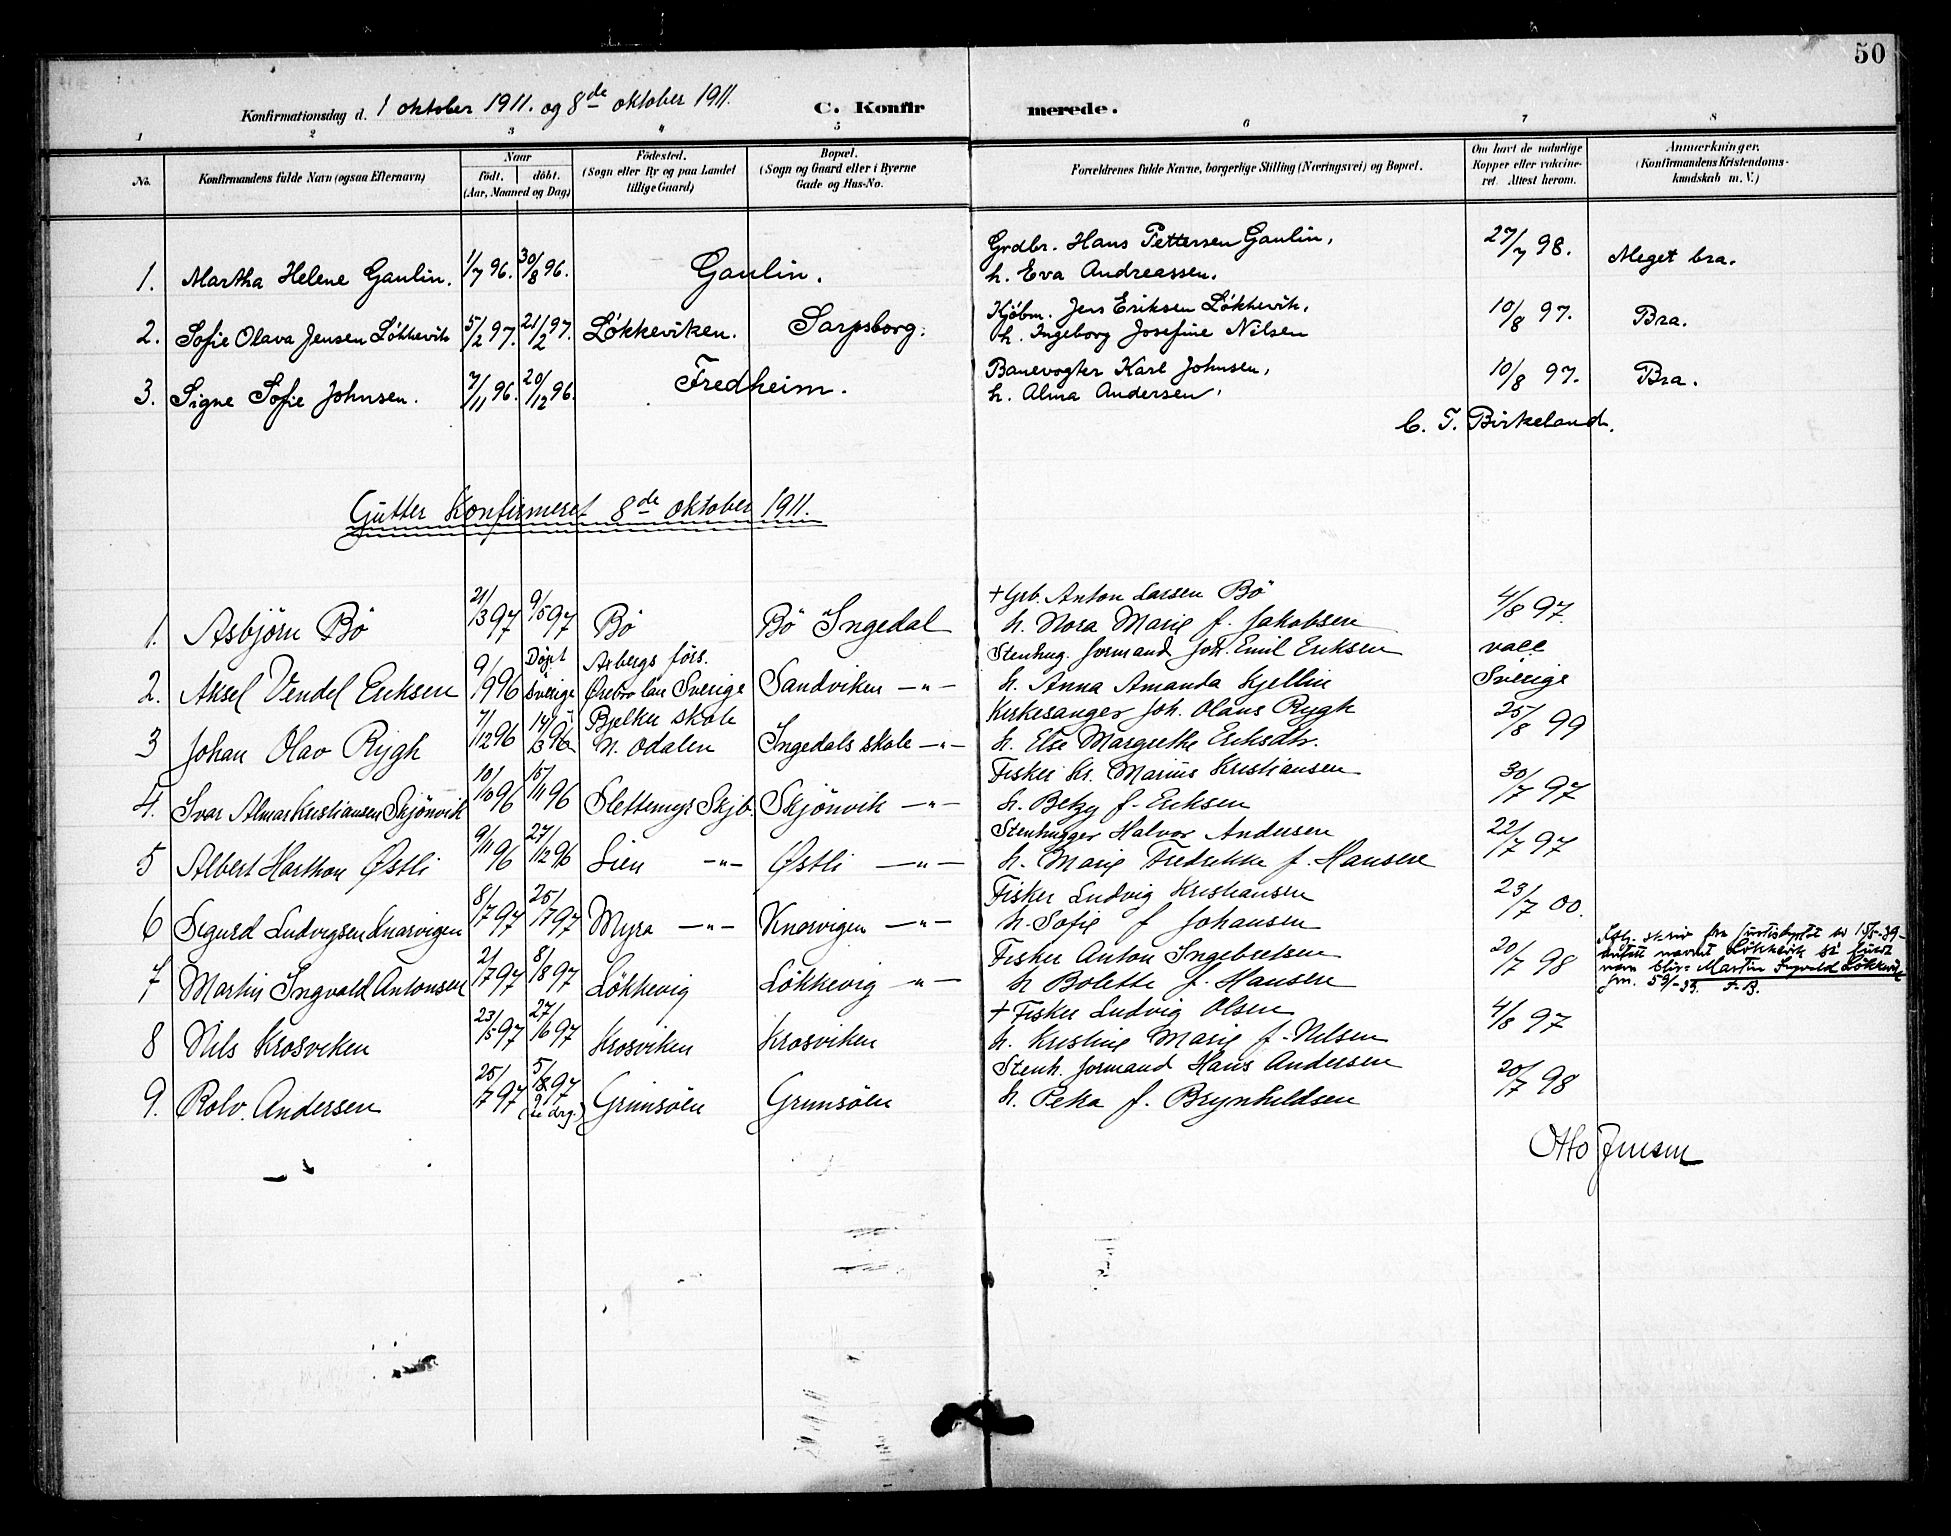 50
Konfirmationsdag d. 1 oktober 1911. og 8de oktober 1911. C. Konfirmerede.
1 2 3 4 5 6 7 8
No. Konfirmandens fulde Navn (ogsaa Efternavn) Naar Födt. döbt. (Aar, Maaned og Dag) Födested. (Sogn eller By og paa Landet tillige Gaard) Bopæl. (Sogn og Gaard eller i Byerne Gade og Hus-No. Forældrenes fulde Navne, borgerlige Stilling (Næringsvei) og Bopæl. Om havt de naturlige Kopper eller vakcineret. Attest herom. Anmærkninger. (Konfirmandens Kristendomskundskab m. V.)
1. Martha Helene Gaulin. 1/7 96. 30/8 96. Gaulin. Grdbr. Hans Pettersen Gaulin, 27/7 98. Meget bra.
h. Eva Andreassen.
2. Sofie Olava Jensen Løkkevik 5/2 97. 21/2 97. Løkkeviken. Sarpsborg. Kjøbm. Jens Eriksen Løkkevik, 10/8 97. Bra.
h. Ingeborg Josefine Nilsen
3. Signe Sofie Johnsen. 7/11 96. 20/12 96. Fredheim. Banevogter Karl Johnsen, 10/8 97. Bra.
h. Alma Andersen,
C. T. Birkeland.
Gutter Konfirmeret 8de oktober 1911.
1. Asbjörn Bö 21/3 97 9/5 97 Bö Bö Ingedal + Grb. Anton Larsen Bö 4/8 97.
h. Nora Marie f. Jakobsen
2. Aksel Vendel Eriksen 9/1 96 Döpt Sverige Asbergs förs. Örebro län Sverige Sandviken -"- Stenhug. formand Joh. Emil Eriksen vacc Sverige
h. Anna Amanda Kjellin
3 Johan Olav Rygh 7/12 96 14/3 96 Bjelke skole N. Odalen Ingedals skole -"- Kirkesanger Joh. Olaus Rygh 25/8 99
h. Else Margrethe Eriksdtr.
4. Ivar Almar Kristiansen Skjönvik 10/10 96 15/11 96 Slettemyr Skjb. Skjönvik -"- Fisker Kr. Marius Kristiansen 30/7 97
h. Betzy f. Eriksen
5 Albert Harthon Østli 9/11 96 27/12 96 Lien -"- Østli -"- Stenhugger Halvor Andersen 22/7 97
h. Marie Fredrikke f. Hansen
6 Sigurd Ludvigsen Knarvigen 8/7 97 25/7 97 Myra -"- Knarvigen -"- Fisker Ludvig Kristiansen 23/7 00.
h. Sofie f Johansen
7 Martin Ingvald Antonsen 2/7 97 8/8 97 Løkkevig Løkkevig -"- Fisker Anton Ingebretsen 20/7 98
h Bolette f. Hansen
navnet Løkkevik
navn blir: Martin Ingvald Løkkevik
8 Nils Krosviken 23/5 97 27/6 97 Krosviken Krosviken + Fisker Ludvig Olsen 4/8 97
h. Kristine Marie f. Nilsen
9. Rolv. Andersen 25/7 97 5/8 97 Grimsöen Grimsöen Stenh. formand Hans Andersen 20/7 98
h. Petra f. Brynhildsen
Otto Jensen